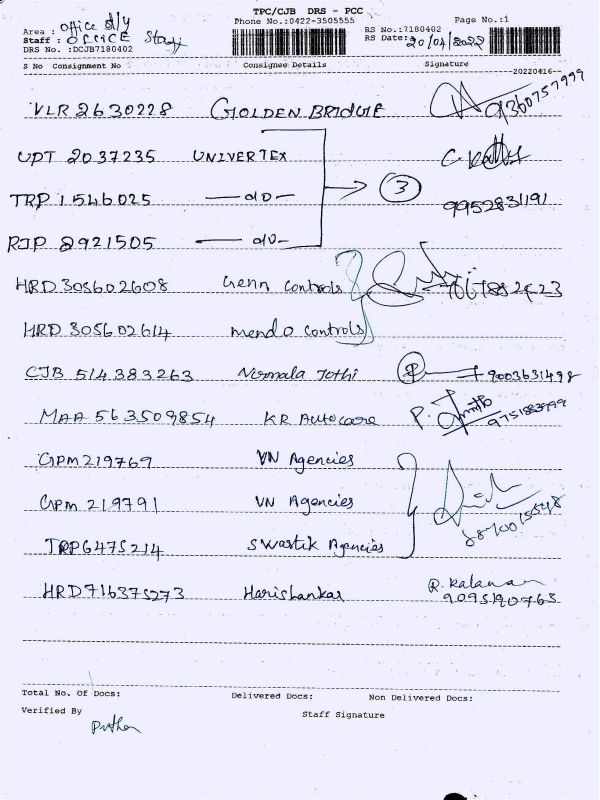 TPC/CJB DRS - PCC
Area : office d/y Phone No.:0422-3505555 Page No.:1
Staff : OFFICE Staff RS No.:7180402
DRS No. :DCJB7180402 RS Date: 20/04/2022
S No Consignment No Consignee Details Signature
20220416
VLR 2630228 GOLDEN BRIDGE 9360757999
UPT 2037235 UNIVERTEX
TRP 1546025 — do — 3 9952831191
RJP 2921505 — do —
HRD 305602608 Genn controls
HRD 305602614 mendo controls
CJB 514383263 Nirmala Jothi 9003631498
MAA 563509854 KR Autocare P. 9751883799
GPM 219769 VN Agencies
GPM 219791 VN Agencies
TRP 6475214 Swastik Agencies
HRD 716375273 Harishankar R. Kalaman
9095190763
Total No. Of Docs: Delivered Docs: Non Delivered Docs:
Verified By Staff Signature